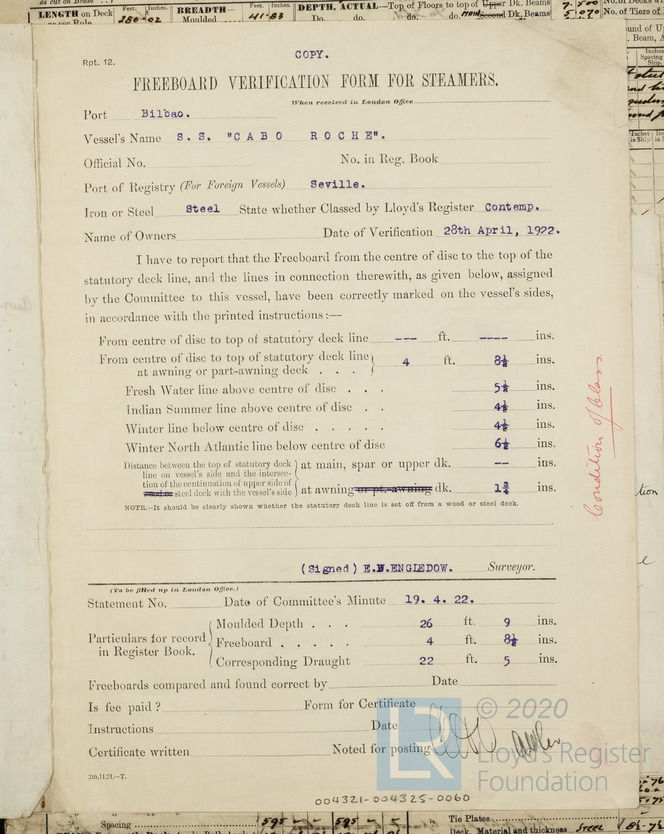 LENGTH on Deck
Feet. Inches.
280-02
BREADTH—
Moulded
Feet. Inches.
41-83
DEPTH, ACTUAL—Top of Floors to top of Upper Dk. Beams
Do. do. do. Second Dk. Beams
COPY.
Rpt. 12.
FREEBOARD VERIFICATION FORM FOR STEAMERS.
When received in London Office
Port Bilbao.
Vessel's Name S.S. "CABO ROCHE".
Official No. No. in Reg. Book
Port of Registry (For Foreign Vessels) Seville.
Iron or Steel Steel State whether Classed by Lloyd's Register Contemp.
Name of Owners Date of Verification 28th April, 1922.
I have to report that the Freeboard from the centre of disc to the top of the
statutory deck line, and the lines in connection therewith, as given below, assigned
by the Committee to this vessel, have been correctly marked on the vessel's sides,
in accordance with the printed instructions :—
From centre of disc to top of statutory deck line --- ft. ---- ins.
From centre of disc to top of statutory deck line
at awning or part-awning deck . . . 4 ft. 8½ ins.
Fresh Water line above centre of disc . . . 5½ ins.
Indian Summer line above centre of disc . . 4½ ins.
Winter line below centre of disc . . . . . 4½ ins.
Winter North Atlantic line below centre of disc 6½ ins.
Distance between the top of statutory deck
line on vessel's side and the intersec-
tion of the continuation of upper side of
steel deck with the vessel's side
at main, spar or upper dk. -- ins.
at awning or pt.-awning dk. 1¾ ins.
NOTE.—It should be clearly shown whether the statutory deck line is set off from a wood or steel deck.
(Signed) E.W.ENGLEDOW. Surveyor.
(To be filled up in London Office.)
Statement No. Date of Committee's Minute 19. 4. 22.
Particulars for record
in Register Book.
Moulded Depth . . . 26 ft. 9 ins.
Freeboard . . . . . 4 ft. 8½ ins.
Corresponding Draught 22 ft. 5 ins.
Freeboards compared and found correct by Date
Is fee paid ? Form for Certificate
Instructions Date
Certificate written Noted for posting
2m,11,21.—T.
Condition of Class
© 2020
LR
Lloyd's Register
Foundation
004321-004325-0060
Spacing 595 595
Tie Plates
Deck. Material and thickness Steel